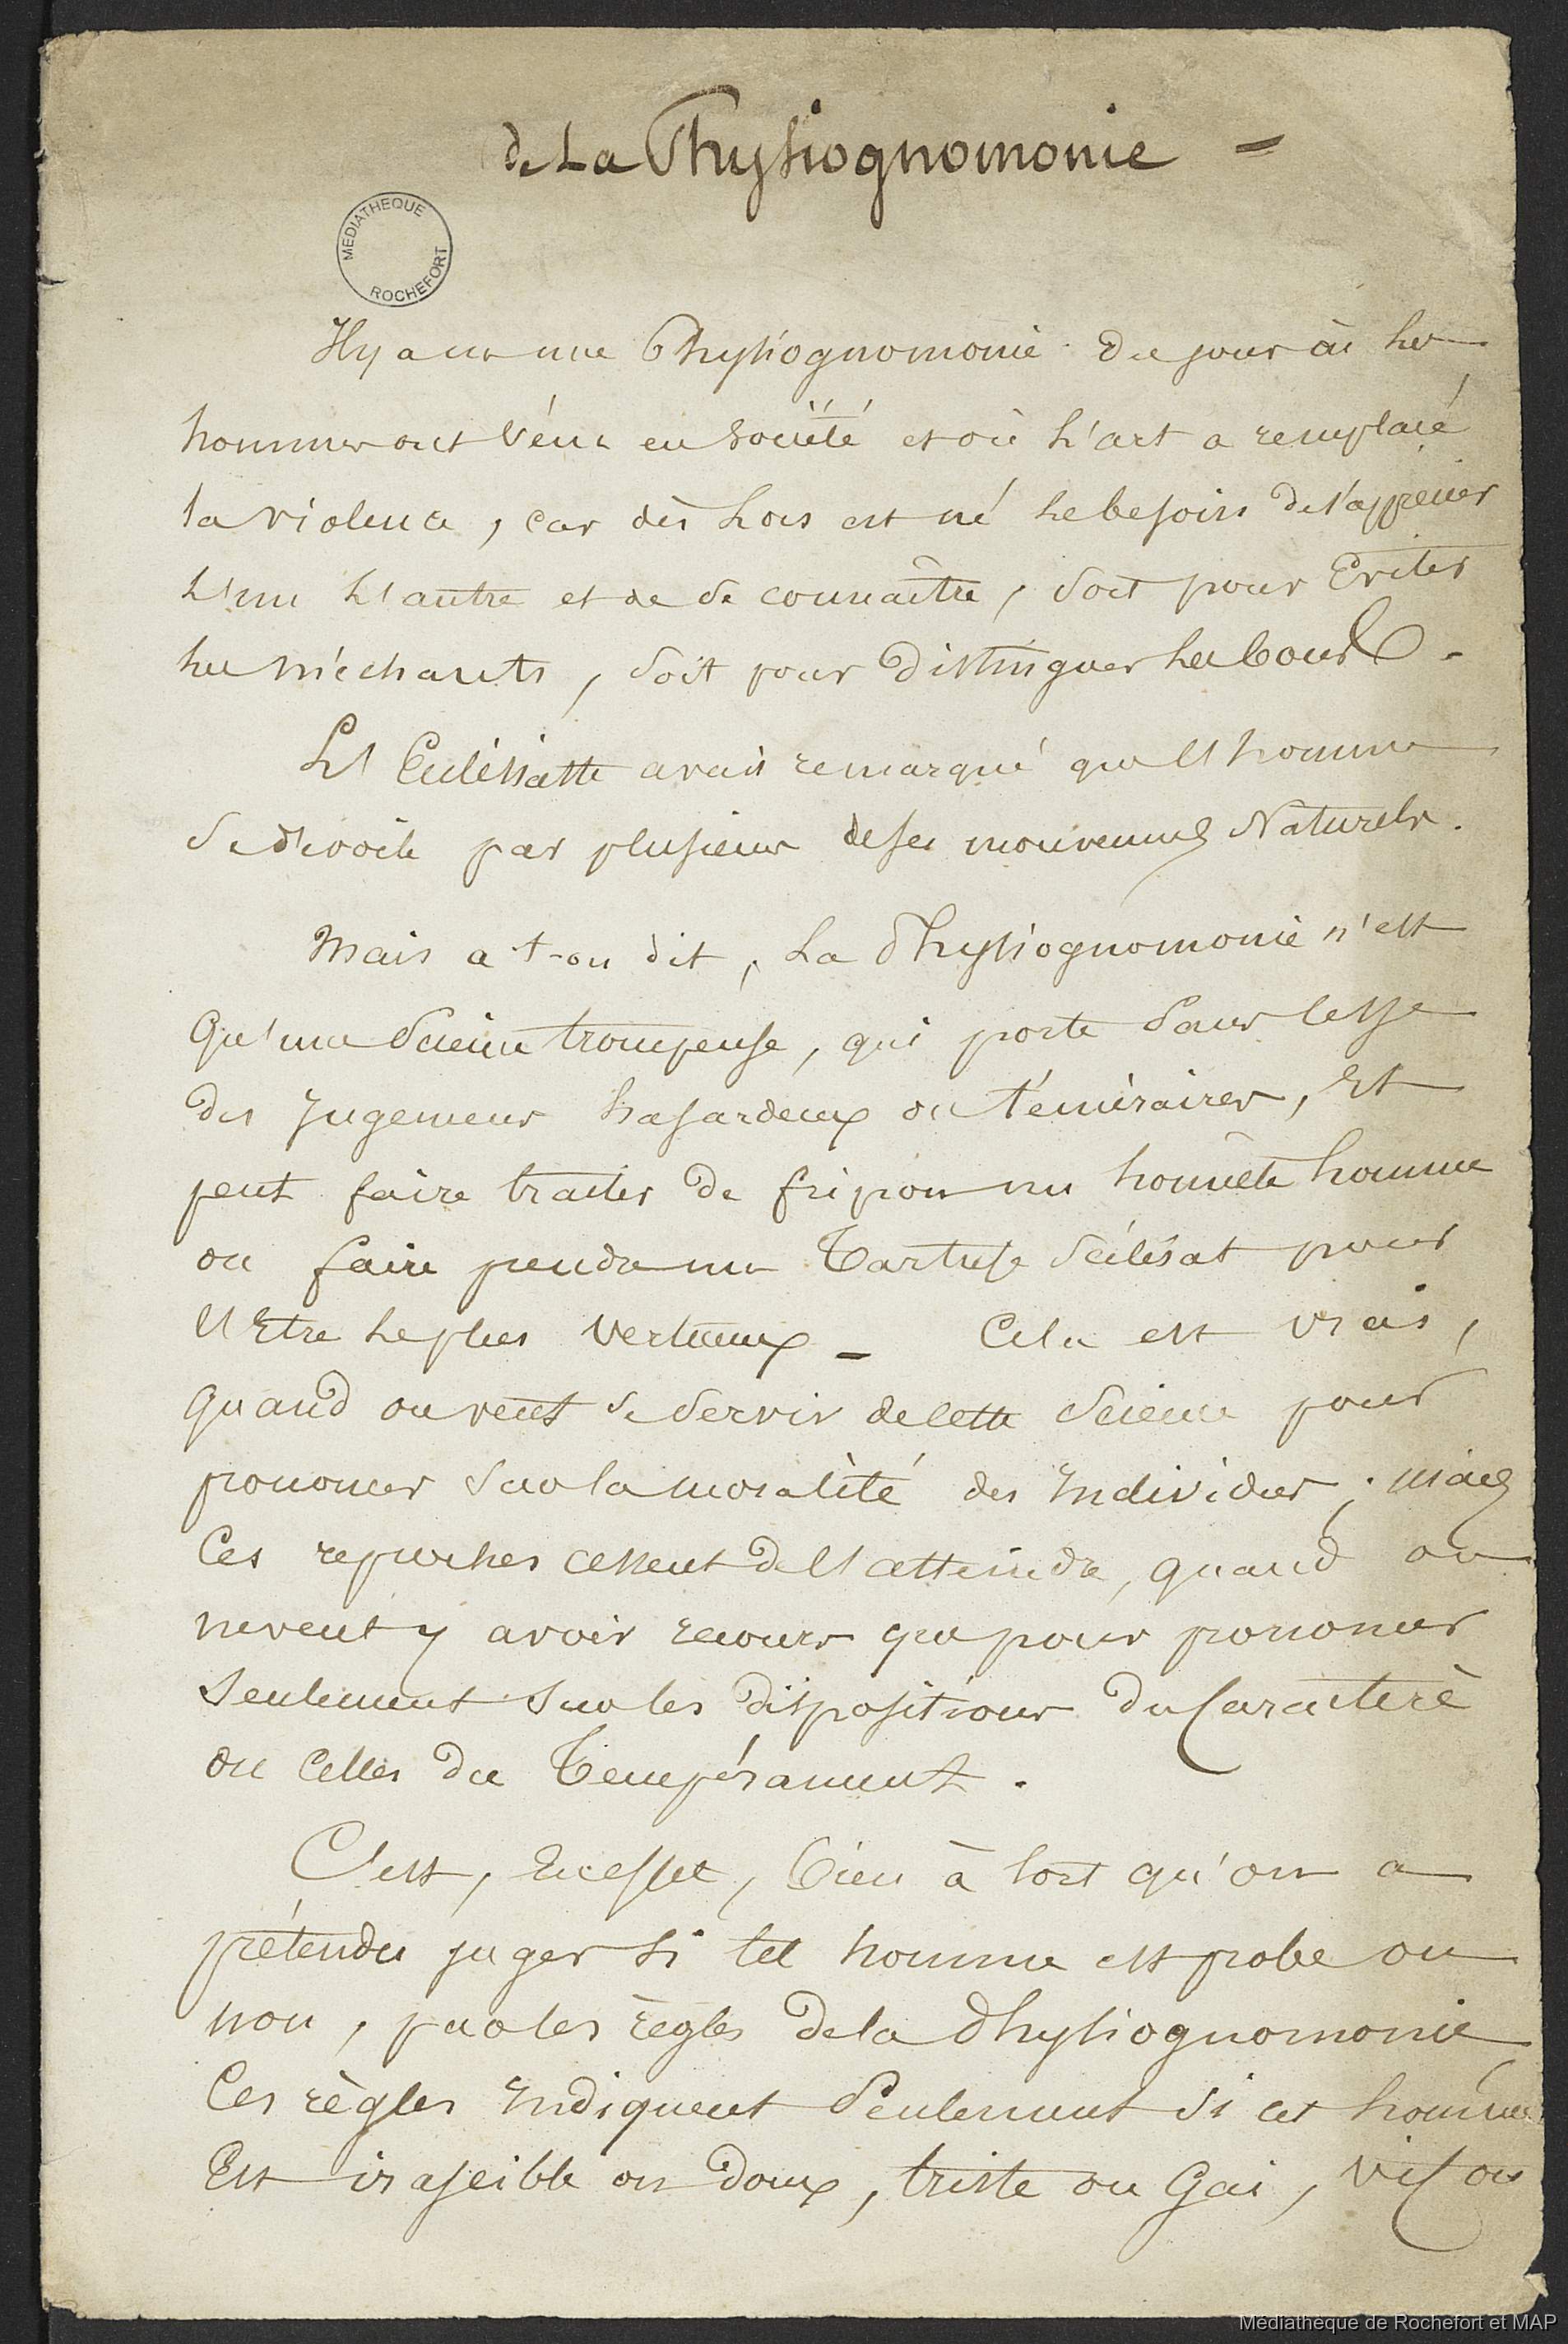 de La Physiognomonie =
MEDIATHEQUE
ROCHEFORT
Il y a eu une Physiognomonie du jour où les
hommes ont vécu en société et où l'art a remplacé
la violence, car dès lors est né le besoin de s'apprécier
l'un l'autre et de se connaître, soit pour Eviter
les méchants, soit pour distinguer les bons.
L'Ecclésiaste avait remarqué que l'homme
se dévoile par plusieurs de ses mouvemens Naturels.
Mais a t-on dit, la Physiognomonie n'est
Qu'une Science trompeuse, qui porte sans cesse
des Jugemens hasardeux ou téméraires, Et
peut faire traiter de fripon un honnête homme
ou faire prendre un Tartufe scélérat pour
l'Etre le plus vertueux _ Cela est vrai,
quand on veut se servir de cette science pour
prononcer sur la moralité des Individus; mais
Ces reproches cessent de l'atteindre, quand on
ne veut y avoir recours que pour prononcer
seulement sur les dispositions du Caractère
ou Celles du Tempérament.
C'est, En effet, bien à tort qu'on a
prétendu juger si tel homme est probe ou
non, par les règles de la Physiognomonie
Ces règles Indiquent Seulement si cet homme
Est irascible ou doux, triste ou Gai, vif ou
Médiathèque de Rochefort et MAP